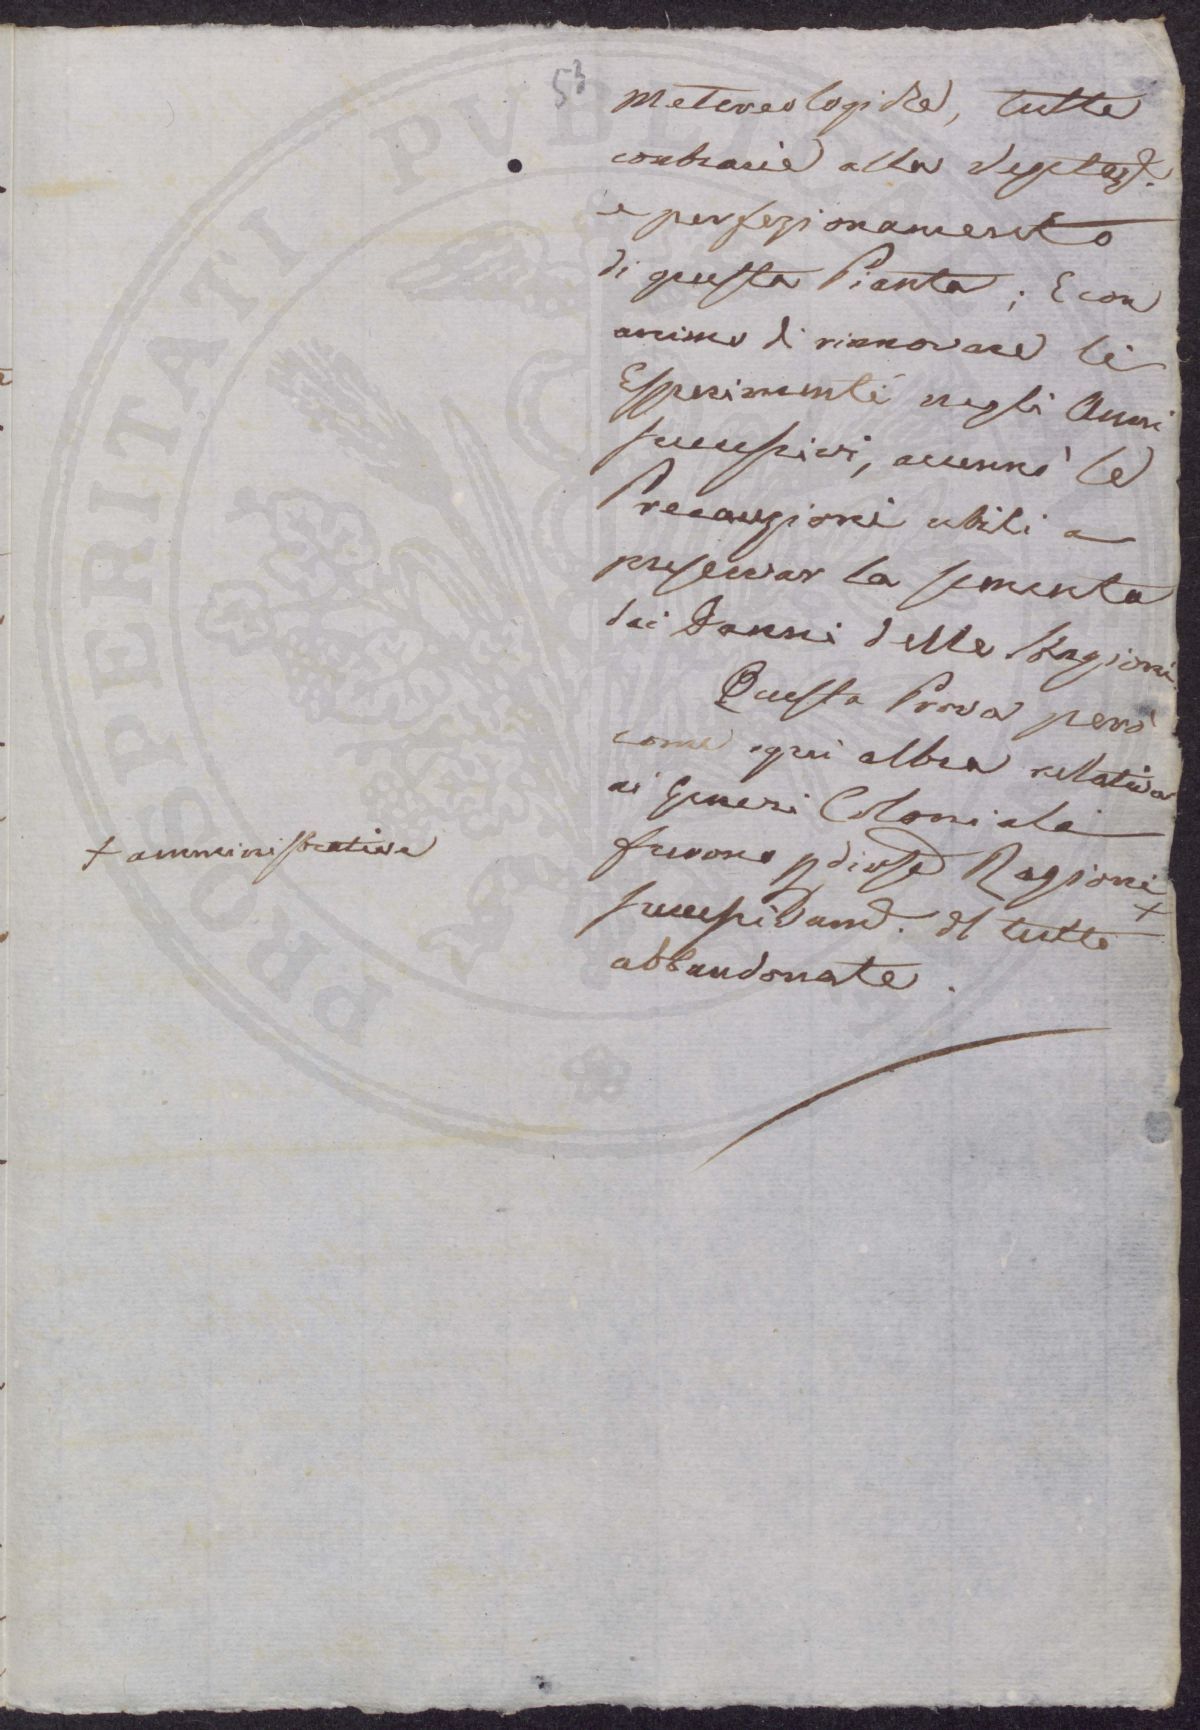 53
Metereologiche, tutte
contrarie alla Vegetaz.
e perfezionamento
di questa Pianta; E con
animo di rinnovare li
Esperimenti negli Anni
successivi, accennò le
Precauzioni utili a
preservar la sementa
dai Danni delle Stagioni.
Questa Prova però
come ogni altra rellativa
ai Generi Coloniali
furono p diverse Ragioni +
+ amministrative
successivam. del tutto
abbandonate.
PROSPERITATI PVBLICAE